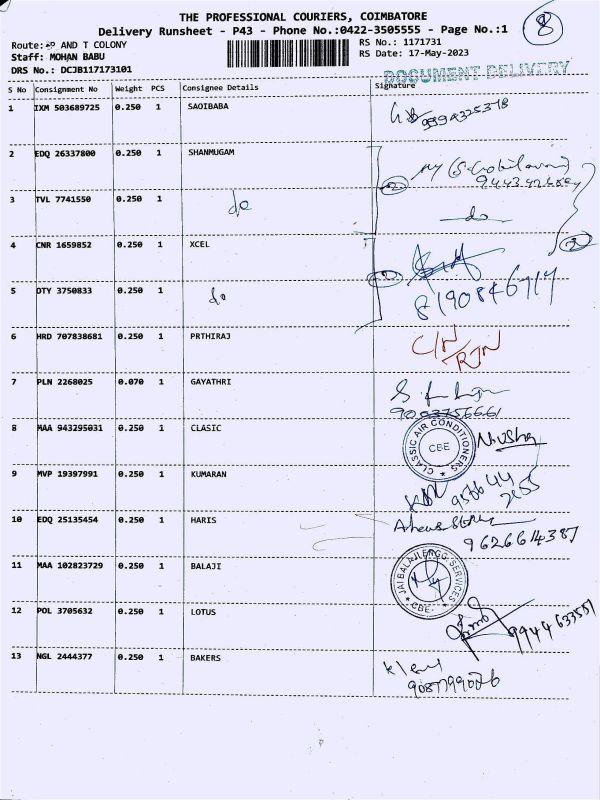 THE PROFESSIONAL COURIERS, COIMBATORE
Delivery Runsheet - P43 - Phone No.:0422-3505555 - Page No.:1
8
Route: P AND T COLONY
RS No.: 1171731
Staff: MOHAN BABU
RS Date: 17-May-2023
DRS No.: DCJB117173101
DOCUMENT DELIVERY
S No Consignment No Weight PCS Consignee Details Signature
1 IXM 503689725 0.250 1 SAOIBABA
9394325378
2 EDQ 26337800 0.250 1 SHANMUGAM
3 TVL 7741550 0.250 1 do
do
4 CNR 1659852 0.250 1 XCEL
5 DTY 3750833 0.250 1 do
8190846717
6 HRD 707838681 0.250 1 PRTHIRAJ C/N
RTN
7 PLN 2268025 0.070 1 GAYATHRI
9003756661
8 MAA 943295031 0.250 1 CLASIC CLASSIC AIR CONDITIONERS CBE Nivsha
9 MVP 19397991 0.250 1 KUMARAN
956644
2655
10 EDQ 25135454 0.250 1 HARIS
9626614387
11 MAA 102823729 0.250 1 BALAJI JAI BALAJI ENGG SERVICES CBE
12 POL 3705632 0.250 1 LOTUS
9944633551
13 NGL 2444377 0.250 1 BAKERS